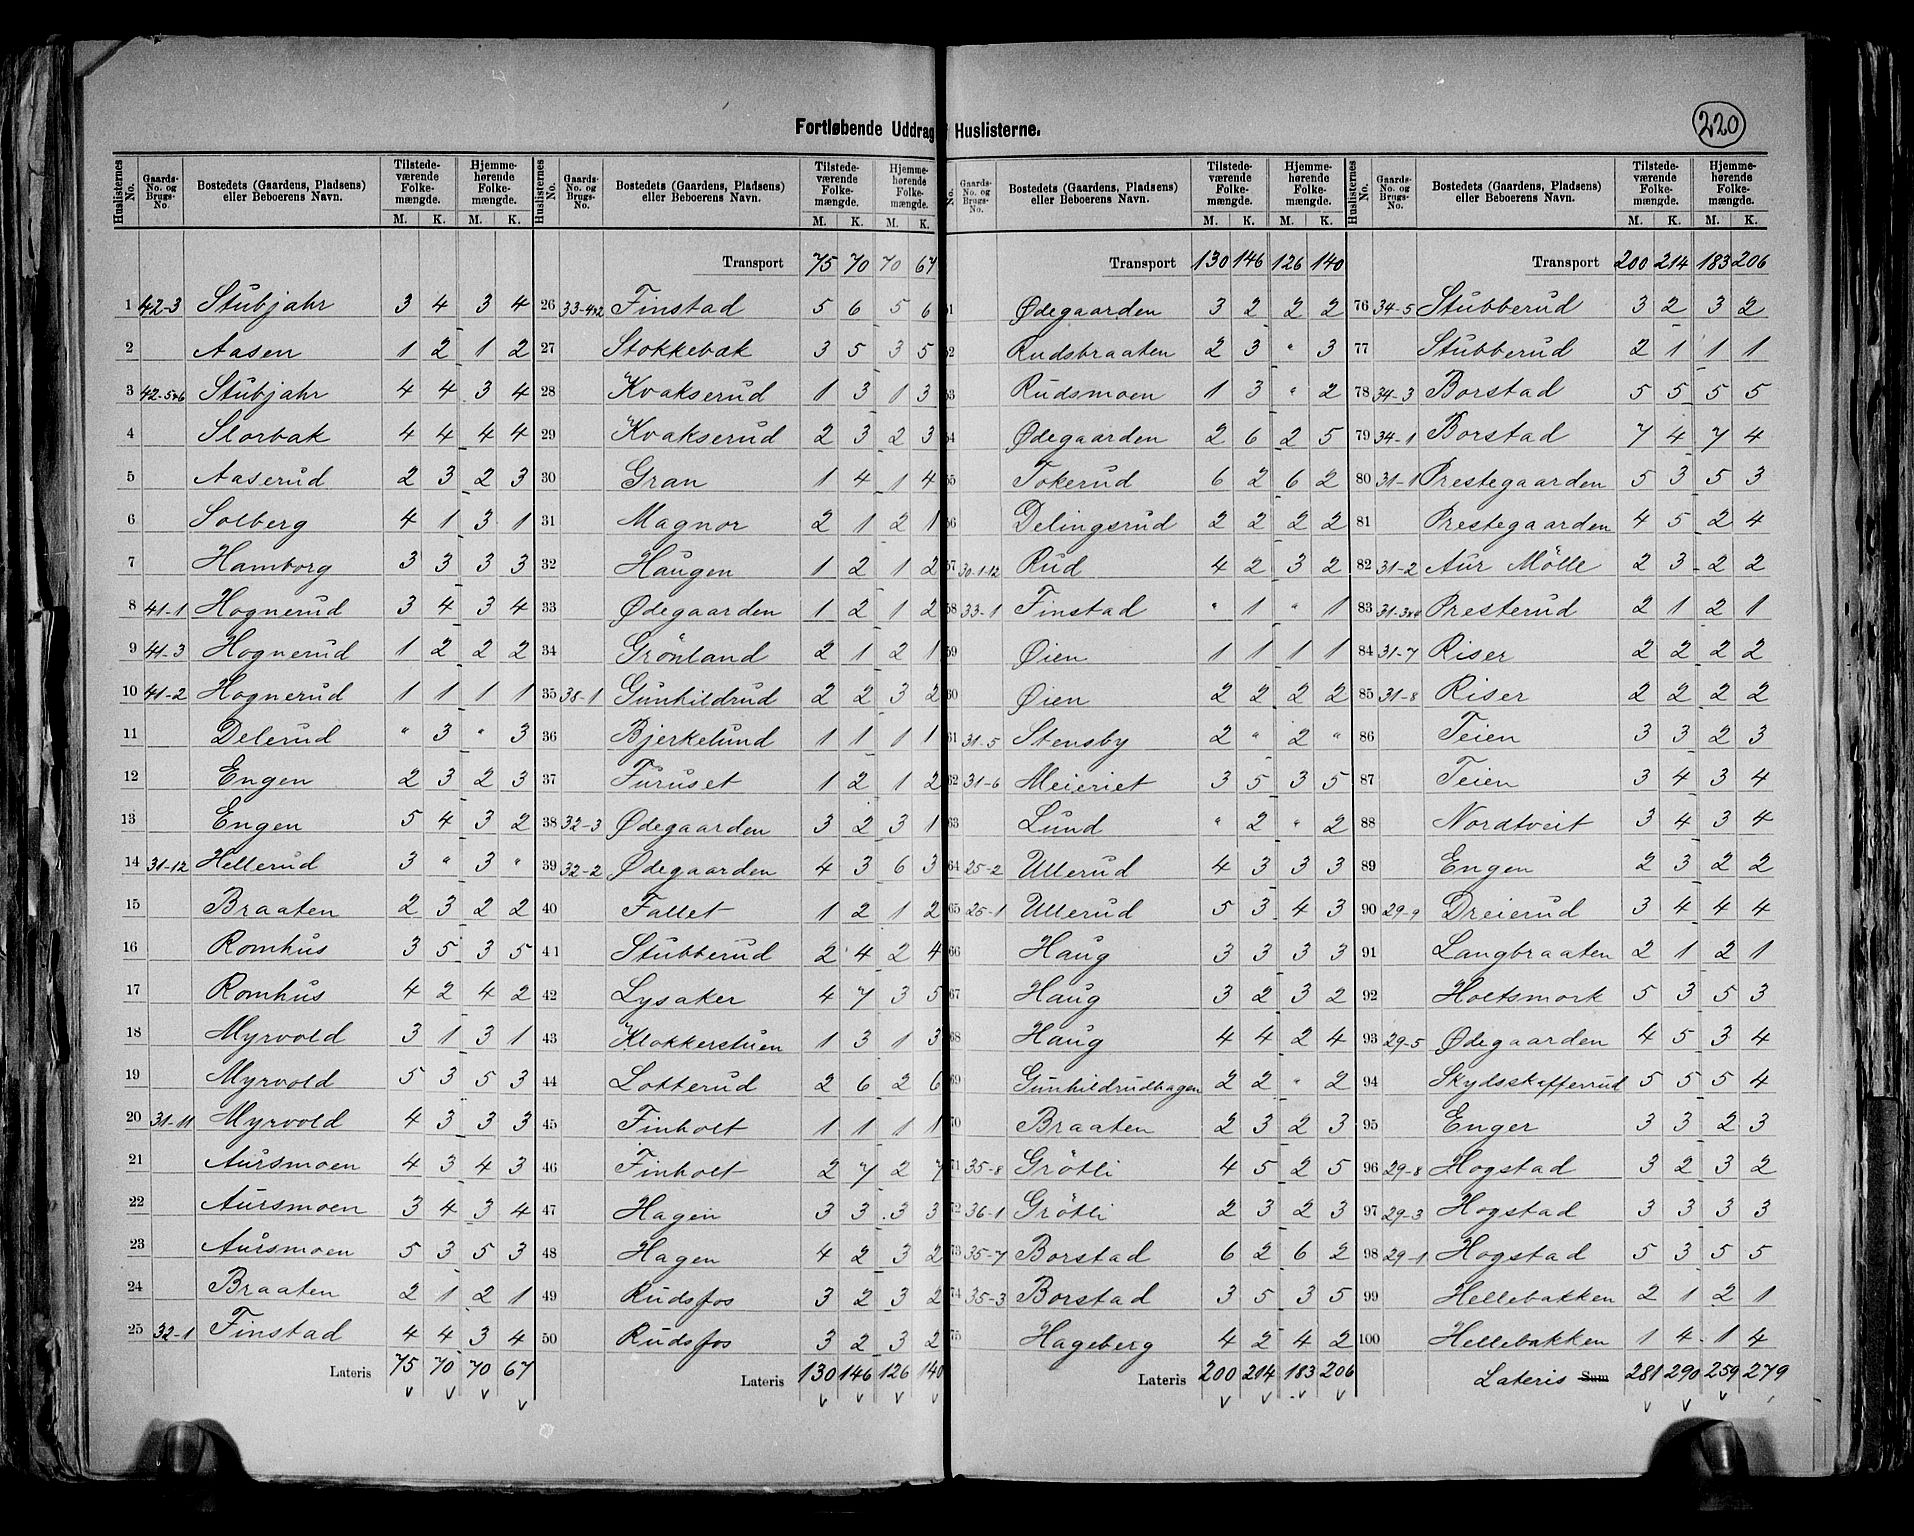 Fortløbende Uddrag Huslisterne.
220
Huslisternes No. Gaards-No. og Brugs-No. Bostedets (Gaardens, Pladsens) eller Beboerens Navn. Tilstedeværende Folkemængde. M. K. Hjemmehørende Folkemængde. M. K.
1 42-3 Stubjahr 3 4 3 4
2 Aasen 1 2 1 2
3 42-5+6 Stubjahr 4 4 3 4
4 Slorbak 4 4 4 4
5 Aaserud 2 3 2 3
6 Solberg 4 1 3 1
7 Hamborg 3 3 3 3
8 41-1 Hognerud 3 4 3 4
9 41-3 Hognerud 1 2 2 2
10 41-2 Hognerud 1 1 1 1
11 Delerud " 3 " 3
12 Engen 2 3 2 3
13 Engen 5 4 3 2
14 31-12 Hellerud 3 " 3 "
15 Braaten 2 3 2 2
16 Romhus 3 5 3 5
17 Romhus 4 2 4 2
18 Myrvold 3 1 3 1
19 Myrvold 5 3 5 3
20 31-11 Myrvold 4 3 3 3
21 Aursmoen 4 3 4 3
22 Aursmoen 3 4 3 4
23 Aursmoen 5 3 5 3
24 Braaten 2 1 2 1
25 32-1 Finstad 4 4 3 4
Lateris 75 70 70 67
Huslisternes No. Gaards-No. og Brugs-No. Bostedets (Gaardens, Pladsens) eller Beboerens Navn. Tilstedeværende Folkemængde. M. K. Hjemmehørende Folkemængde. M. K.
Transport 75 70 70 67
26 33-4+2 Finstad 5 6 5 6
27 Stokkebæk 3 5 3 5
28 Kvakserud 1 3 1 3
29 Kvakserud 2 3 2 3
30 Gran 1 4 1 4
31 Magnor 2 1 2 1
32 Haugen 1 2 1 2
33 Ødegaarden 1 2 1 2
34 Grönland 2 1 2 1
35 38-1 Gunhildrud 2 2 3 2
36 Bjerkelund 1 1 1 1
37 Furuset 1 2 1 2
38 32-3 Ødegaarden 3 2 3 1
39 32-2 Ødegaarden 4 3 6 3
40 Fallet 1 2 1 2
41 Stubberud 2 4 2 4
42 Lysaker 4 7 3 5
43 Klokkerstuen 1 3 1 3
44 Lotterud 2 6 2 6
45 Finholt 1 1 1 1
46 Finholt 2 7 2 7
47 Hagen 3 3 3 3
48 Hagen 4 2 3 2
49 Rudsfos 3 2 3 2
50 Rudsfos 3 2 3 2
Lateris 130 146 126 140
No. Gaards-No. og Brugs-No. Bostedets (Gaardens, Pladsens) eller Beboerens Navn. Tilstedeværende Folkemængde. M. K. Hjemmehørende Folkemængde. M. K.
Transport 130 146 126 140
51 Ødegaarden 3 2 2 2
52 Rudsbraaten 2 3 " 3
53 Rudsmoen 1 3 " 2
54 Ødegaarden 2 6 2 5
55 Tokerud 6 2 6 2
56 Delingsrud 2 2 2 2
57 30-1-12 Rud 4 2 3 2
58 33-1 Finstad " 1 " 1
59 Øien 1 1 1 1
60 Øien 2 2 2 2
61 31-5 Stensby 2 " 2 "
62 31-6 Meieriet 3 5 3 5
63 Lund " 2 " 2
64 25-2 Ullerud 4 3 3 3
65 25-1 Ullerud 5 3 4 3
66 Haug 3 3 3 3
67 Haug 3 2 3 2
68 Haug 4 4 2 4
69 Gunhildrudhagen 2 2 " 2
70 Braaten 2 3 2 3
71 35-8 Grötli 4 5 2 5
72 36-1 Grötli 2 3 2 3
73 35-7 Borstad 6 2 6 2
74 35-3 Borstad 3 5 3 5
75 Hageberg 4 2 4 2
Lateris 200 214 183 206
Huslisternes No. Gaards-No. og Brugs-No. Bostedets (Gaardens, Pladsens) eller Beboerens Navn. Tilstedeværende Folkemængde. M. K. Hjemmehørende Folkemængde. M. K.
Transport 200 214 183 206
76 34-5 Stubberud 3 2 3 2
77 Stubberud 2 1 1 1
78 34-3 Borstad 5 5 5 5
79 34-1 Borstad 7 4 7 4
80 31-1 Prestegaarden 5 3 5 3
81 Prestegaarden 4 5 2 4
82 31-2 Aur Mölle 2 3 2 2
83 31-3+4 Presterud 2 1 2 1
84 31-7 Riser 2 2 2 2
85 31-8 Riser 2 2 2 2
86 Teien 3 3 2 3
87 Teien 3 4 3 4
88 Nordtveit 3 4 3 4
89 Engen 2 3 2 2
90 29-9 Dreierud 3 4 4 4
91 Langbraaten 2 1 2 1
92 Holtsmork 5 3 5 3
93 29-5 Ødegaarden 4 5 3 4
94 Skydsskafferrud 5 5 5 4
95 Enger 3 3 2 3
96 29-8 Hogstad 3 2 3 2
97 29-3 Hogstad 3 3 3 3
98 29-1 Hogstad 5 3 5 5
99 Hellebakken 2 1 2 1
100 Hellebakken 1 4 1 4
Lateris Sum 281 290 259 279